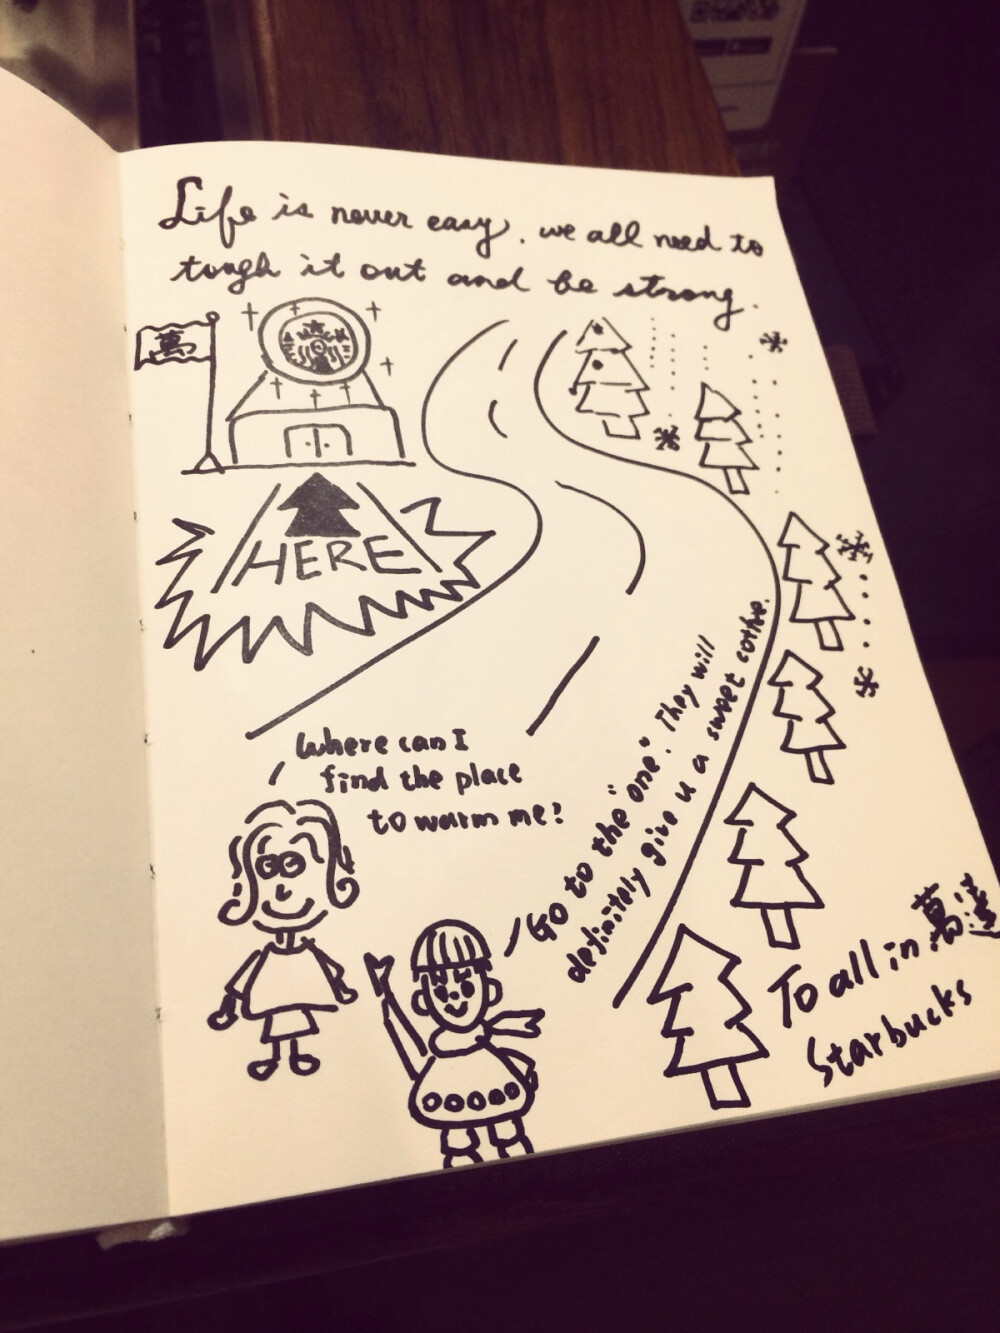 Life is never easy, we all need to
tough it out and be strong.
萬
HERE
Where can I
find the place
to warm me?
Go to the "one". They will
definitely give u a sweet coffee.
To all in 萬達
Starbucks